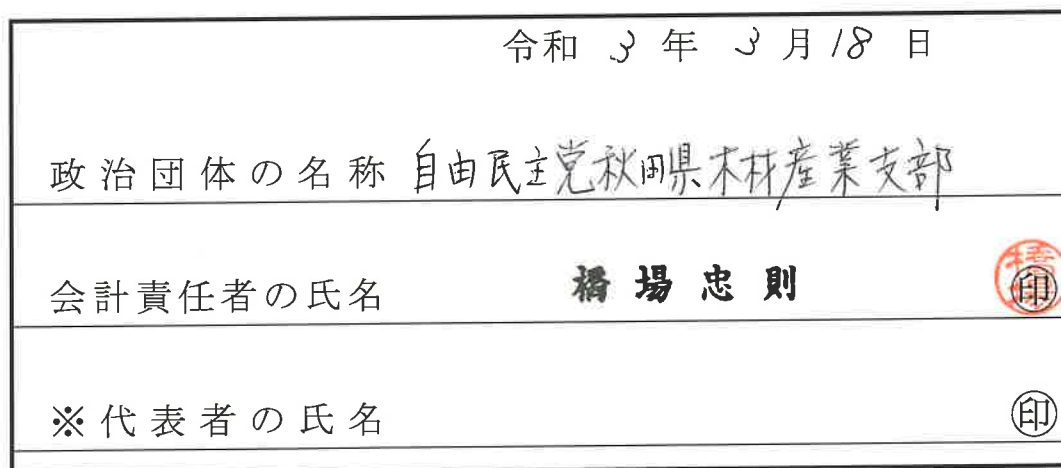 令和 3 年 3 月 18 日
政治団体の名称 自由民主党秋田県木材産業支部
会計責任者の氏名 橋場忠則 ㊞
※代表者の氏名 ㊞